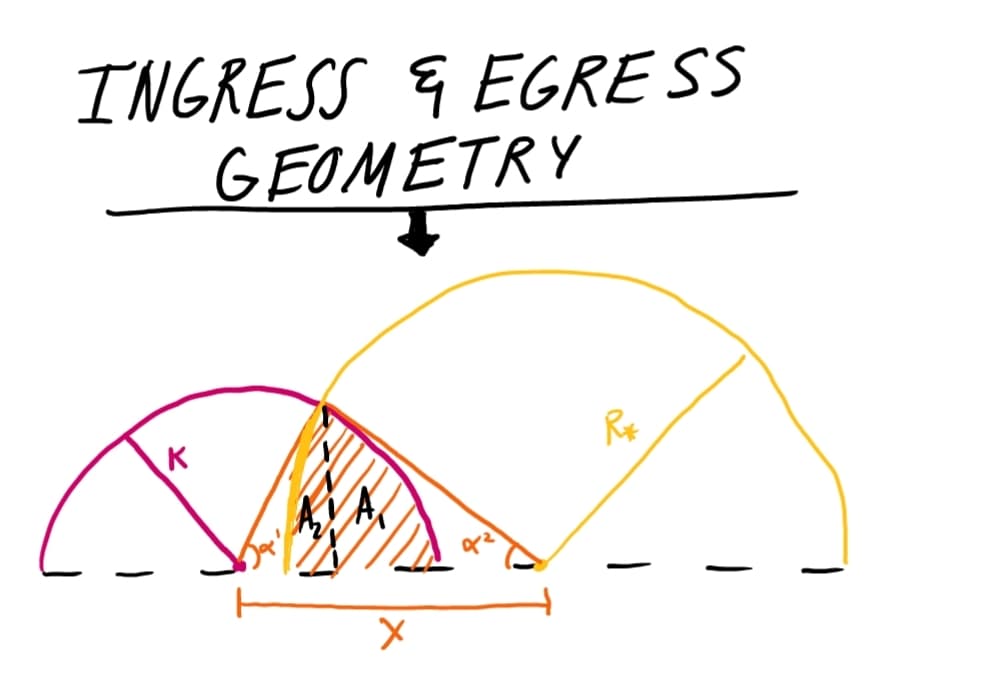 INGRESS & EGRESS
GEOMETRY
R*
K
A₂
A₁
α¹
α²
X